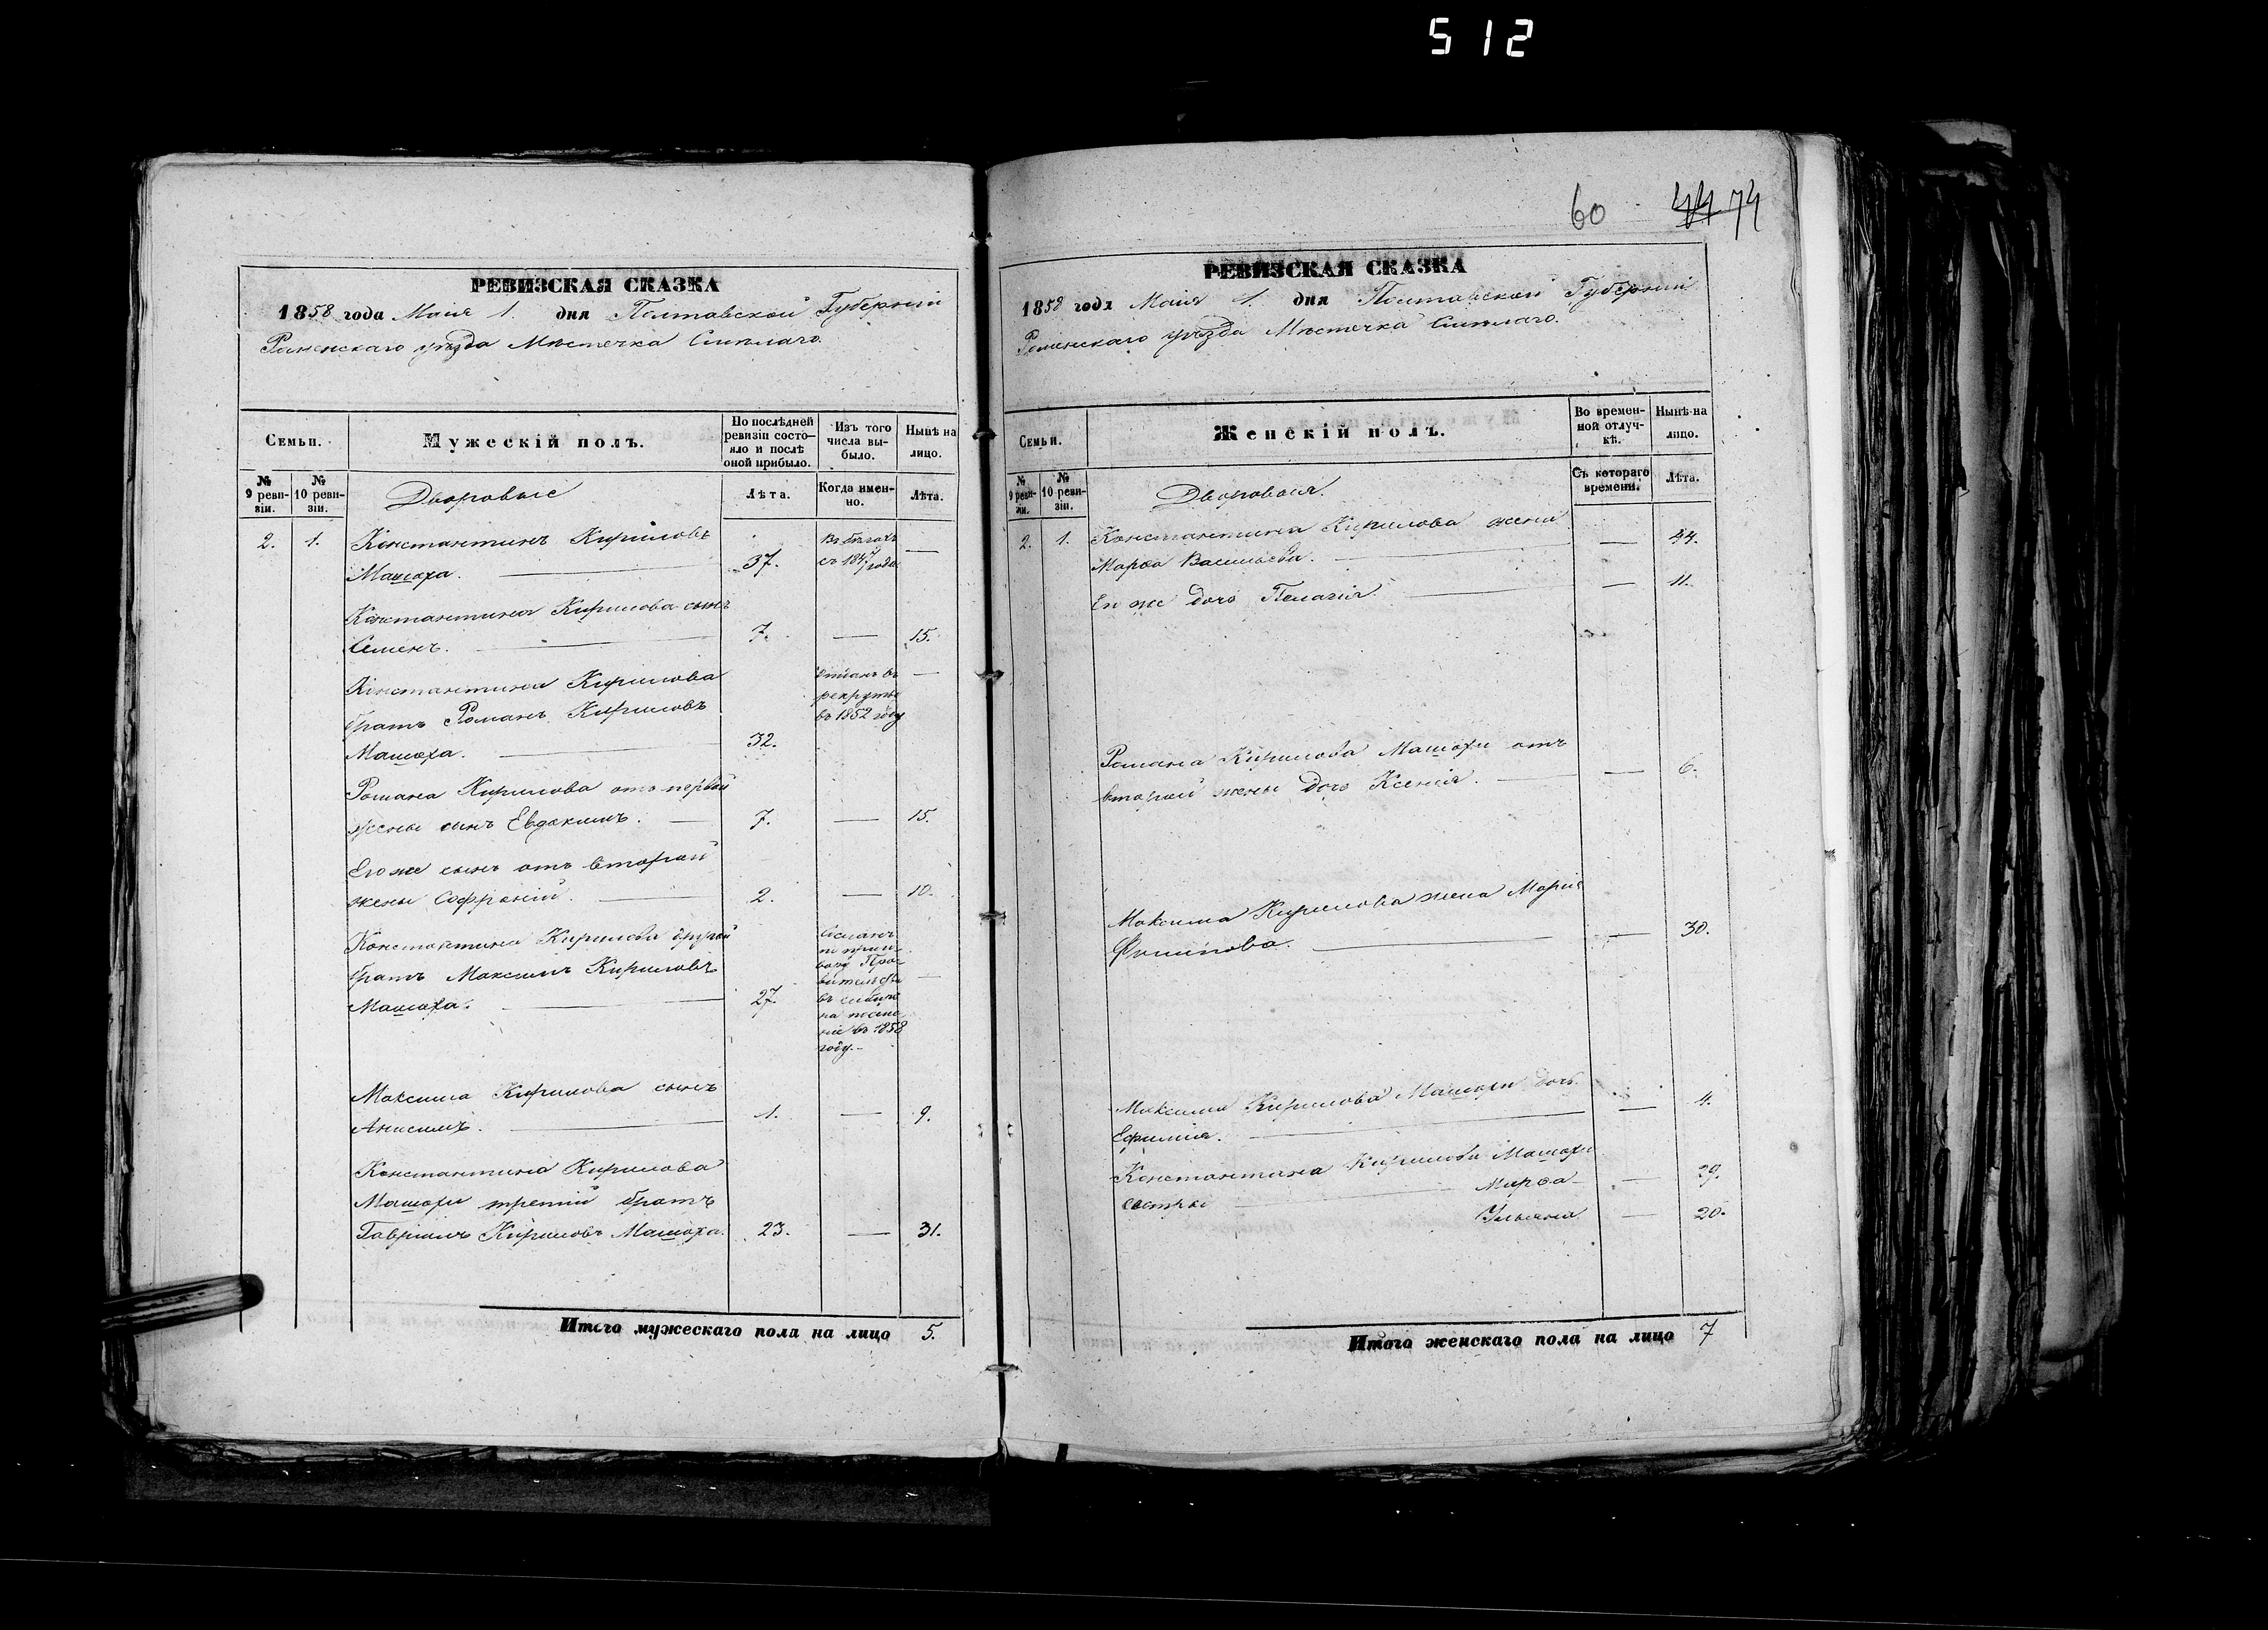 512
РЕВИЗСКАЯ СКАЗКА
1858 года Маія 1. дня Полтавской Губерніи
Роменскаго уѣзда Мѣстечка Смѣлаго.
Семьи.
Мужескій полъ.
По послѣдней ревизіи состояло и послѣ оной прибыло.
Изъ того числа выбыло.
Нынѣ на лицо.
№ 9 ревизіи.
№ 10 ревизіи.
Дворовые
Лѣта.
Когда именно.
Лѣта.
2. 1. Константинъ Кириловъ
Машоха. 37. Въ бѣгахъ съ 1847 года —
Константина Кирилова сынъ
Семенъ. 7. — 15.
Константина Кирилова
братъ Романъ Кириловъ
Машоха. 32. отданъ въ рекруты въ 1852 году —
Романа Кирилова отъ первой
жены сынъ Евдокимъ. 7. — 15.
Его же сынъ отъ второй
жены Софроній. 2. — 10.
Константина Кирилова другой
братъ Максимъ Кириловъ
Машоха. 27. Сосланъ по въ 1858 году. —
Максима Кирилова сынъ
Анисимъ. 1. — 9.
Константина Кирилова
Машохи третій братъ
Гавріилъ Кириловъ Машоха. 23. — 31.
Итого мужескаго пола на лицо 5.
60 44 74
РЕВИЗСКАЯ СКАЗКА
1858 года Маія 1. дня Полтавской Губерніи
Роменскаго уѣзда Мѣстечка Смѣлаго.
Семьи.
Женскій полъ.
Во временной отлучкѣ.
Нынѣ на лицо.
№ 9 ревизіи.
№ 10 ревизіи.
Дворовыя.
Съ котораго времени.
Лѣта.
2. 1. Константина Кирилова жена
Марѳа Васильева. — 44.
Ея же дочь Пелагія. — 11.
Романа Кирилова Машохи отъ
второй жены дочь Ксенія. — 6.
Максима Кирилова жена Марія
Филипова. — 30.
Максима Кирилова Машохи дочь
Ефимія. — 4.
Константина Кирилова Машохи
сестры Марѳа — 29.
Ульяна — 20.
Итого женскаго пола на лицо 7